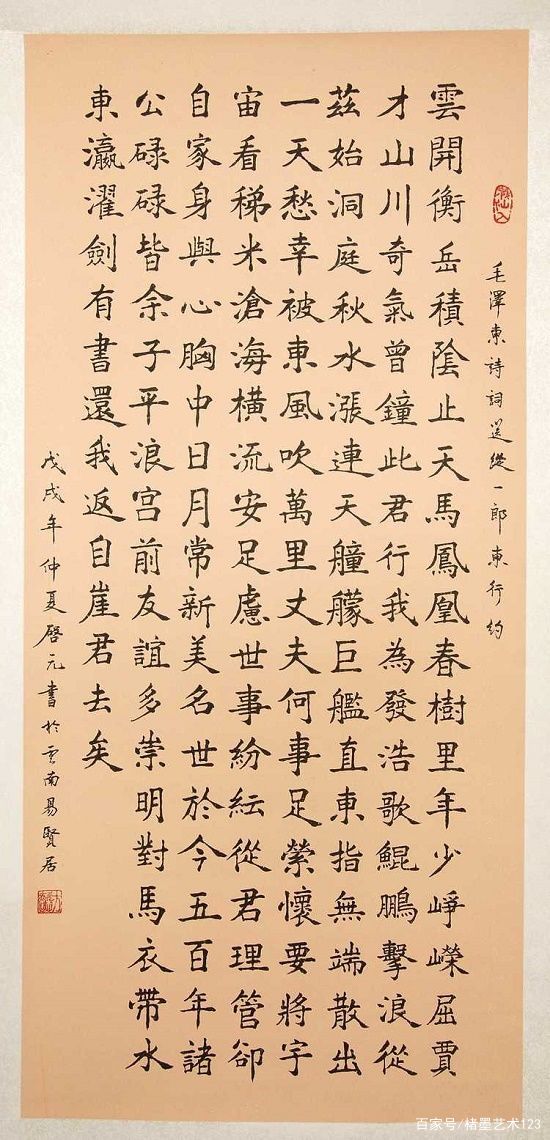 毛澤東詩詞送縱一郎東行約
雲開衡岳積陰止天馬鳳凰春樹里年少崢嶸屈賈
才山川奇氣曾鐘此君行我為發浩歌鯤鵬擊浪從
茲始洞庭秋水漲連天艟艨巨艦直東指無端散出
一天愁幸被東風吹萬里丈夫何事足縈懷要將宇
宙看稊米滄海橫流安足慮世事紛紜從君理管卻
自家身與心胸中日月常新美名世於今五百年諸
公碌碌皆余子平浪宮前友誼多崇明對馬衣帶水
東瀛濯劍有書還我返自崖君去矣
戊戌年仲夏啓元書於雲南易賢居
百家号/楮墨艺术123